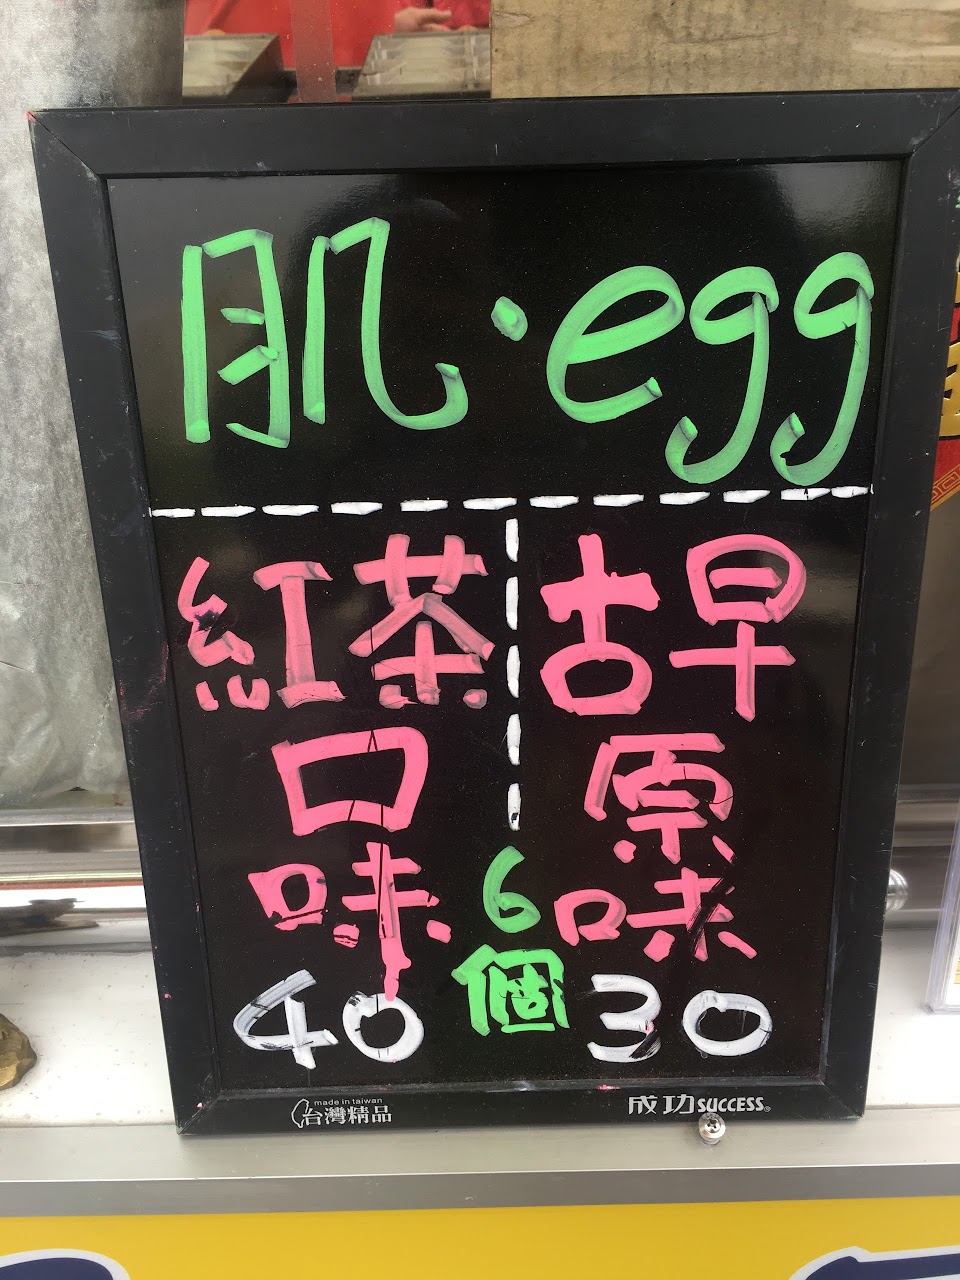 肌·egg
紅茶
口
味
40
6
個
古早
原
味
30
made in taiwan
台灣精品
成功SUCCESS®